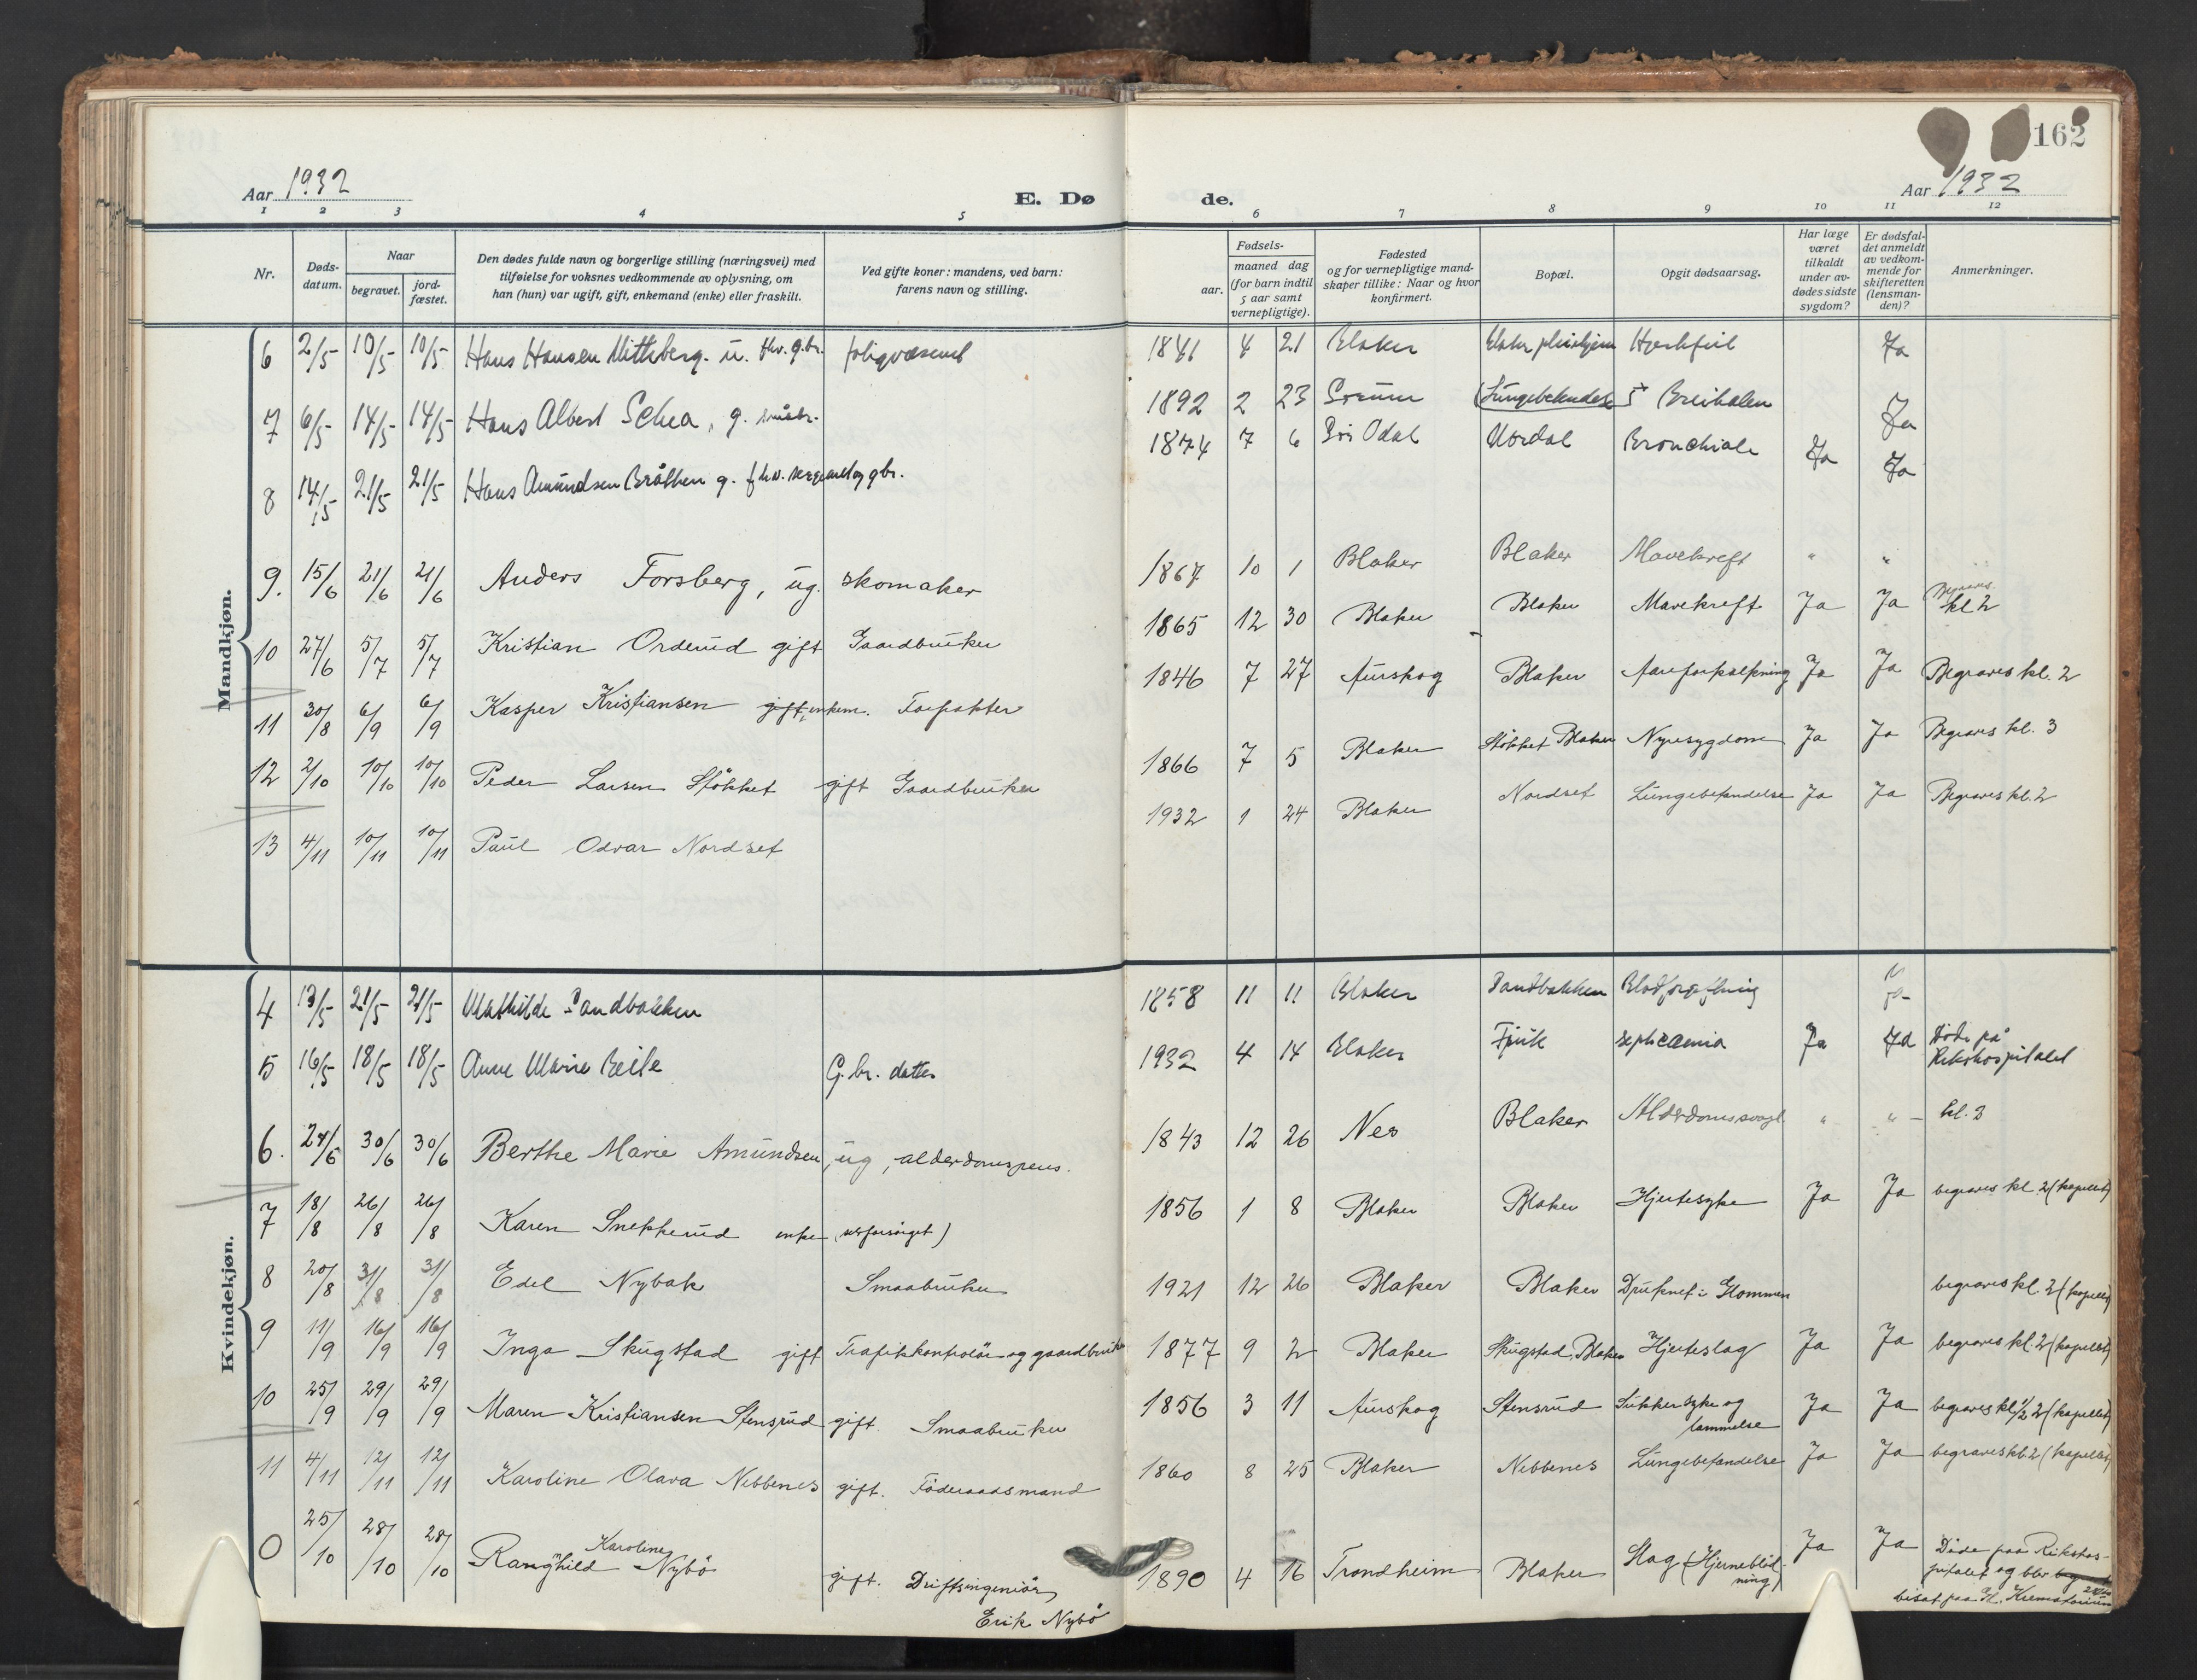 162
Aar 1932 E. Dø de. Aar 1932
1 2 3 4 5 6 7 8 9 10 11 12
Nr.
Døds-
datum.
Naar
begravet.
jord-
fæstet.
Den dødes fulde navn og borgerlige stilling (næringsvei) med
tilføielse for voksnes vedkommende av oplysning, om
han (hun) var ugift, gift, enkemand (enke) eller fraskilt.
Ved gifte koner: mandens, ved barn:
farens navn og stilling.
Fødsels-
aar.
maaned dag
(for barn indtil
5 aar samt
vernepligtige).
Fødested
og for vernepligtige mand-
skaper tillike: Naar og hvor
konfirmert.
Bopæl.
Opgit dødsaarsag.
Har læge
været
tilkaldt
under av-
dødes sidste
sygdom?
Er dødsfal-
det anmeldt
av vedkom-
mende for
skifteretten
(lensman-
den)?
Anmerkninger.
Mandkjøn.
6 2/5 10/5 10/5 Hans Hansen u. fhv. g.br. 1841 4 21 Blaker Blaker Ja
7 6/5 14/5 14/5 Hans Albert g. småbr. 1892 2 23 Sørum (Lungebetendelse Ja
8 14/5 21/5 21/5 Hans Amundsen Bråthen g. fhv. sergeant og gbr. 1874 7 6 Odal Bronchiale Ja Ja
9. 15/6 21/6 21/6 Anders Forsberg, ug. skomaker 1867 10 1 Blaker Blaker Mavekreft " "
10 27/6 5/7 5/7 Kristian Orderud gift Gaardbruker 1865 12 30 Blaker Blaker Mavekreft Ja Ja Begraves kl 2
11 30/8 6/9 6/9 Kasper Kristiansen gift, enkem. Forpakter 1846 7 27 Aurskog Blaker Aareforkalkning Ja Ja Begraves kl. 2
12 2/10 10/10 10/10 Peder Larsen Støkket gift Gaardbruker 1866 7 5 Blaker Støkket Blaker Nyresygdom Ja Ja Begraves kl. 3
13 4/11 10/11 10/11 Paul Odvar Nordset 1932 1 24 Blaker Nordset Lungebetendelse Ja Ja Begraves kl. 2
Kvindekjøn.
4 13/5 21/5 21/5 Mathilde Sandbakken 1858 11 11 Blaker Sandbakken Blodforgiftning
5 16/5 18/5 18/5 Anne Marie G.br. datter 1932 4 14 Blaker septicæmia Ja Ja Døde på
Rikshospitalet
6. 24/6 30/6 30/6 Berthe Marie Amundsen, ug, alderdomspens. 1843 12 26 Nes Blaker Alderdomssvagh. " " kl. 3
7 18/8 26/8 26/8 Karen Snekkerud enke (selvforsørget) 1856 1 8 Blaker Blaker Hjertesyke Ja Ja begraves kl. 2 (kapellet)
8 20/8 31/8 31/8 Edel Nybak Smaabruker 1921 12 26 Blaker Blaker Druknet i Glommen begraves kl. 2 (kapellet)
9 11/9 16/9 16/9 Inga Skugstad gift Trafikkontrolør og gaardbruker 1877 9 2 Blaker Skugstad, Blaker Hjerteslag Ja Ja begraves kl. 2 (kapellet)
10 25/9 29/9 29/9 Maren Kristiansen Stensrud gift. Smaabruker 1856 3 11 Aurskog Stensrud Sukkersyke og
lammelse Ja Ja begraves kl ½ 2 (kapellet)
11 4/11 12/11 12/11 Karoline Olava Nebbenes gift. Føderaadsmand 1860 8 25 Blaker Nebbenes Lungebetendelse Ja Ja begraves kl. 2 (kapellet)
0 25/10 28/10 28/10 Ranghild Karoline Nybø gift. Driftsingeniør
Erik Nybø 1890 4 16 Trondheim Blaker Slag (Hjerneblød-
ning) Ja Ja Døde paa Rikshos-
pitalet og blev
bisat paa Krematorium